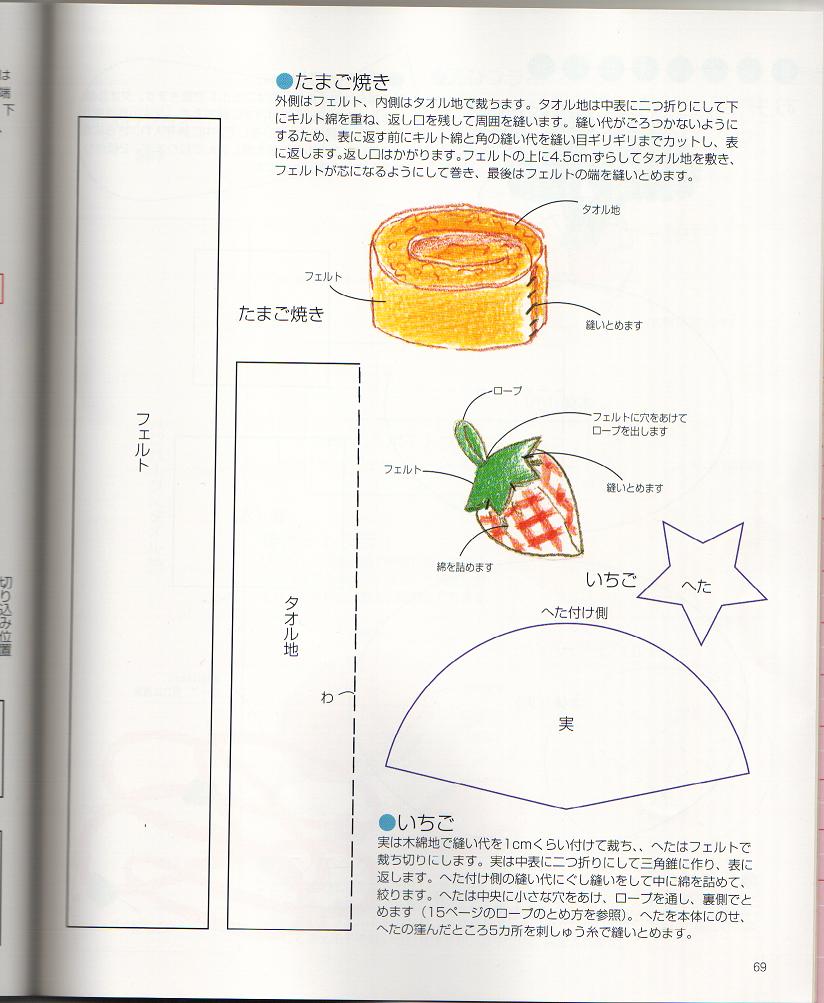 は
端
下
、
切り込み位置
●たまご焼き
外側はフェルト、内側はタオル地で裁ちます。タオル地は中表に二つ折りにして下
にキルト綿を重ね、返し口を残して周囲を縫います。縫い代がごろつかないように
するため、表に返す前にキルト綿と角の縫い代を縫い目ギリギリまでカットし、表
に返します。返し口はかがります。フェルトの上に4.5cmずらしてタオル地を敷き、
フェルトが芯になるようにして巻き、最後はフェルトの端を縫いとめます。
タオル地
フェルト
たまご焼き
縫いとめます
フェルト
ロープ
フェルトに穴をあけて
ロープを出します
フェルト
縫いとめます
綿を詰めます
いちご
へた
へた付け側
タオル地
わ
実
●いちご
実は木綿地で縫い代を1cmくらい付けて裁ち、、へたはフェルトで
裁ち切りにします。実は中表に二つ折りにして三角錐に作り、表に
返します。へた付け側の縫い代にぐし縫いをして中に綿を詰めて、
絞ります。へたは中央に小さな穴をあけ、ロープを通し、裏側でと
めます（15ページのロープのとめ方を参照）。へたを本体にのせ、
へたの窪んだところ5カ所を刺しゅう糸で縫いとめます。
69